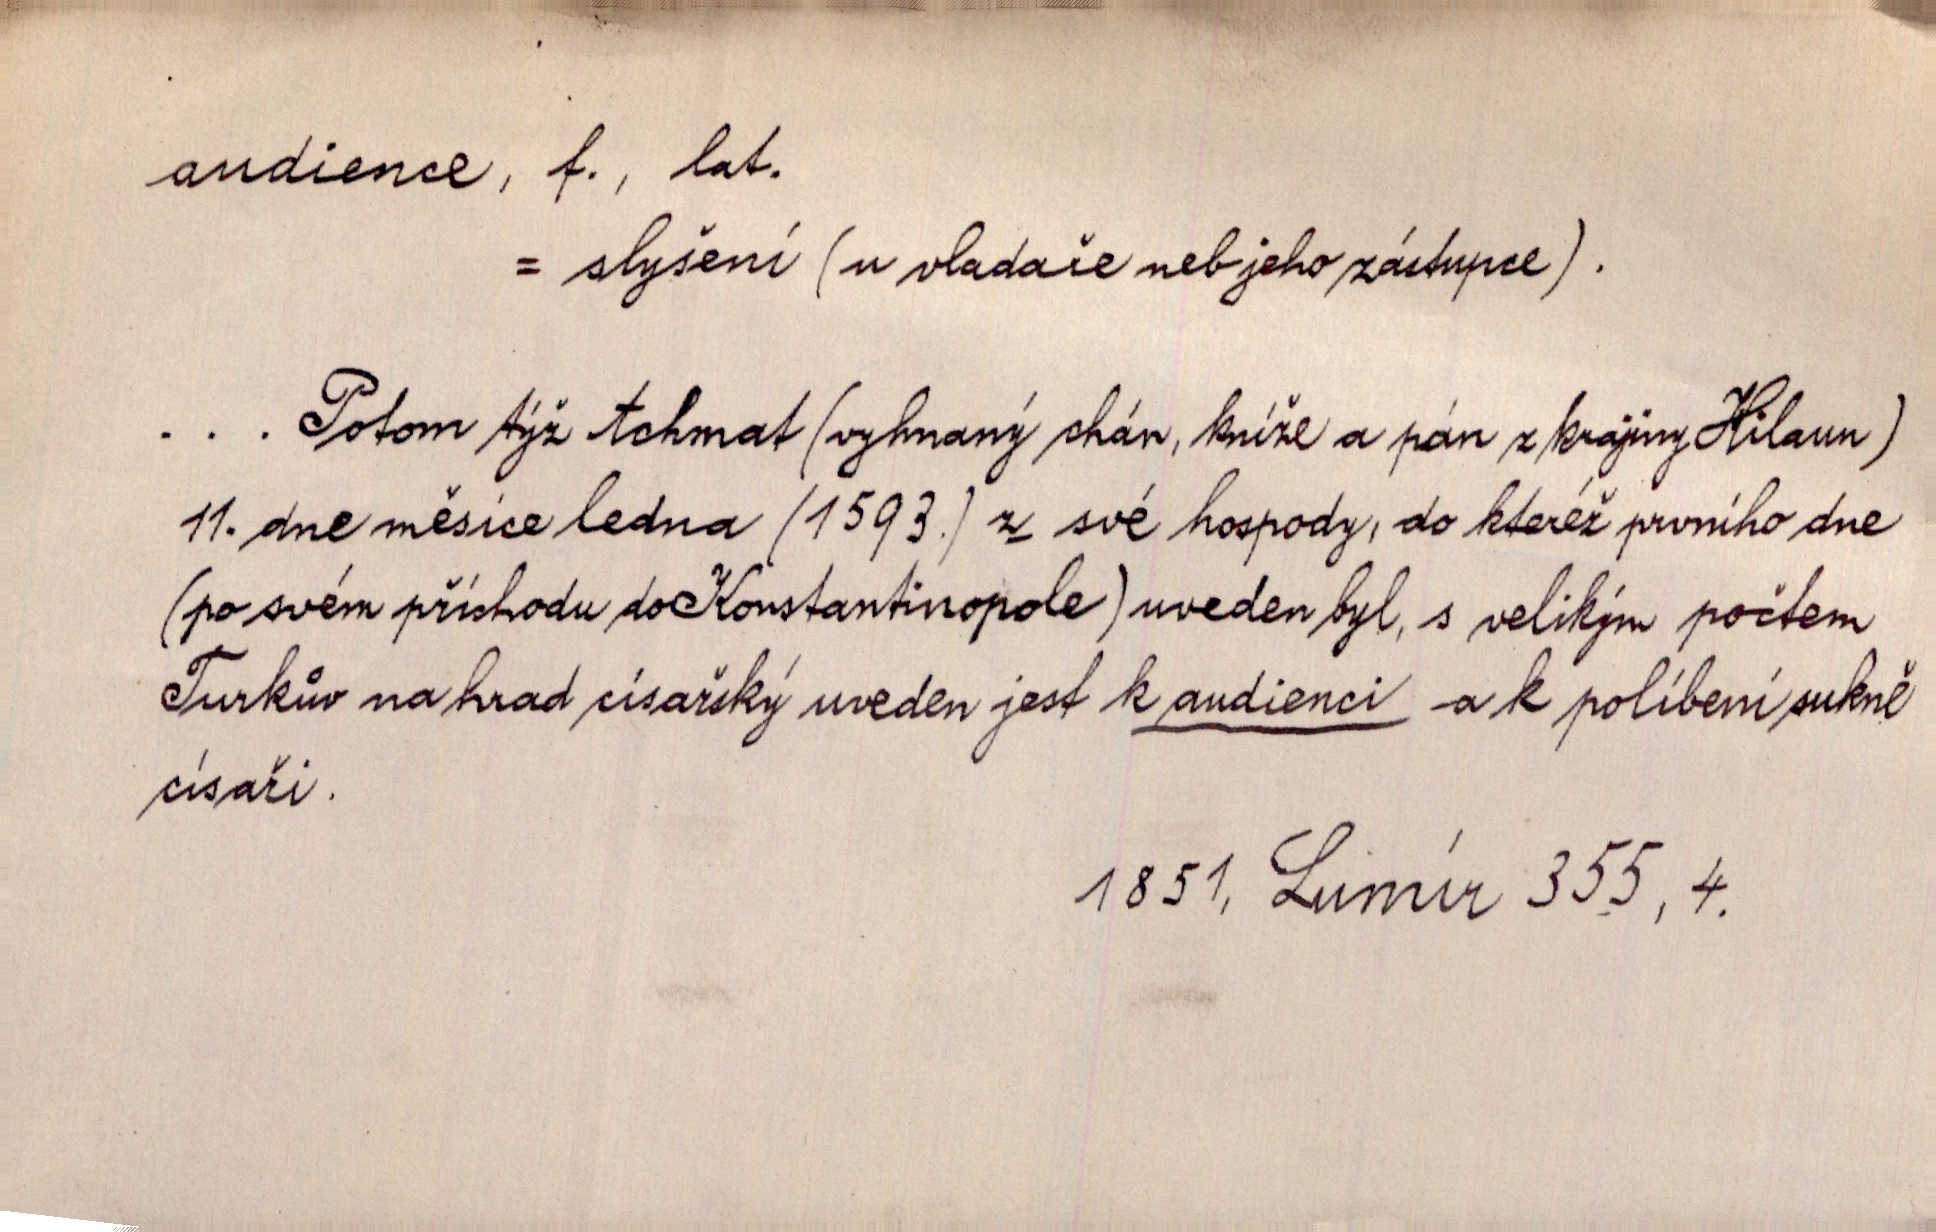 audience, f., lat.
= slyšení (u vladaře neb jeho zástupce).
... Potom týž Achmat (vyhnaný chán, kníže a pán z krajiny Hilaun)
11. dne měsíce ledna (1593.) z své hospody, do kteréž prvního dne
(po svém příchodu do Konstantinopole) uveden byl, s velikým počtem
Turkův na hrad císařský uveden jest k audienci a k políbení sukně
císaři.
1851, Lumír 355, 4.